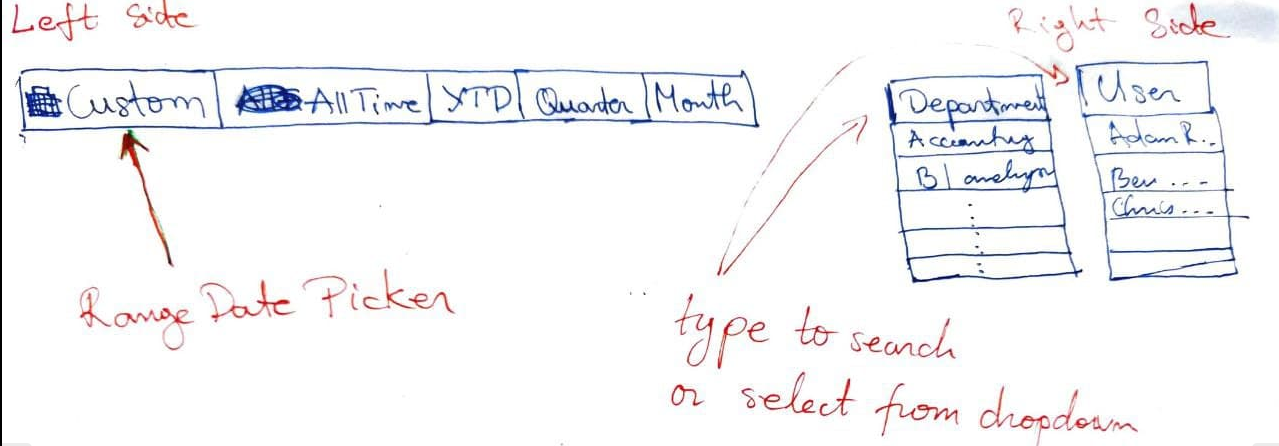 Left Side
Right Side
Custom | All Time | YTD | Quarter | Month
Department
Accounting
BI analyst
User
Adam R..
Ben ...
Chris ...
Range Date Picker
type to search
or select from dropdown